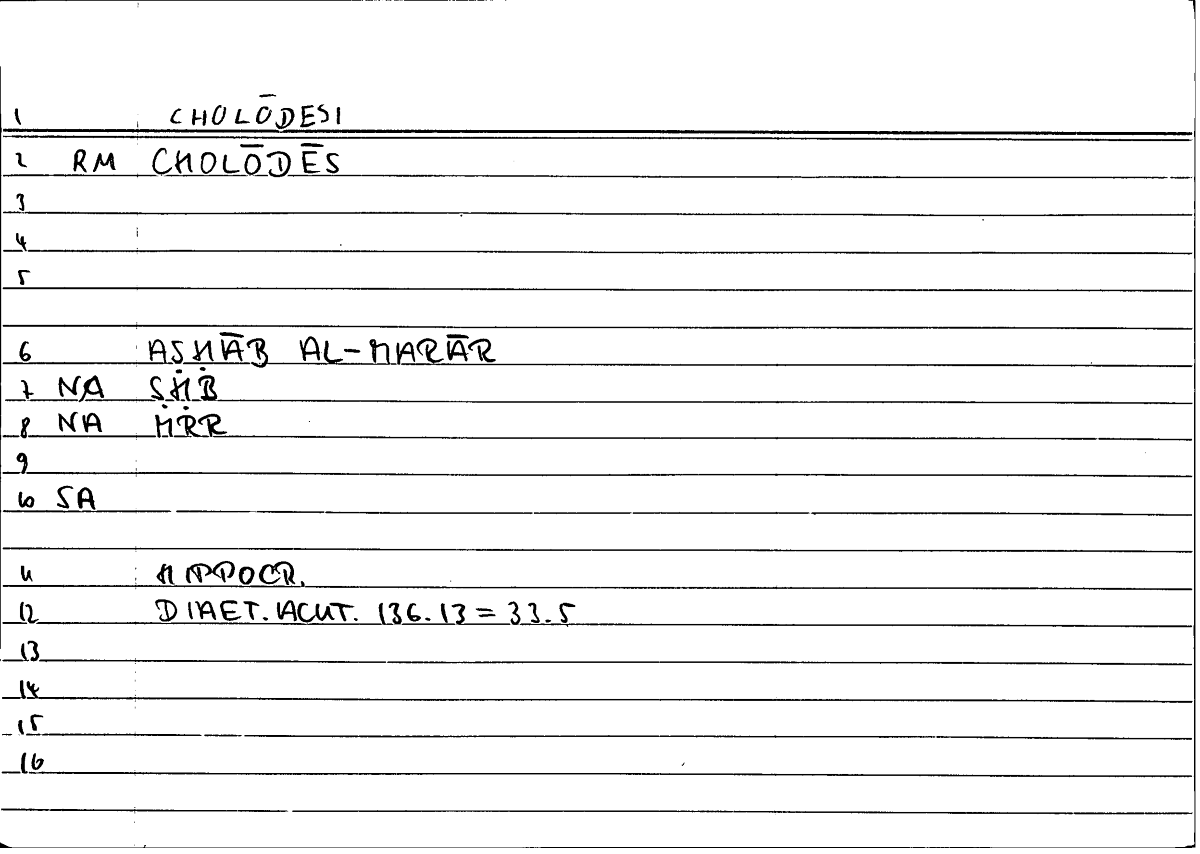 1 CHOLŌDESI
2 RM CHOLŌDĒS
3
4
5
6 AṢḤĀB AL-MARĀR
7 NA ṢḤB
8 NA MRR
9
10 SA
11 HIPPOCR.
12 DIAET. ACUT. 136.13 = 33.5
13
14
15
16